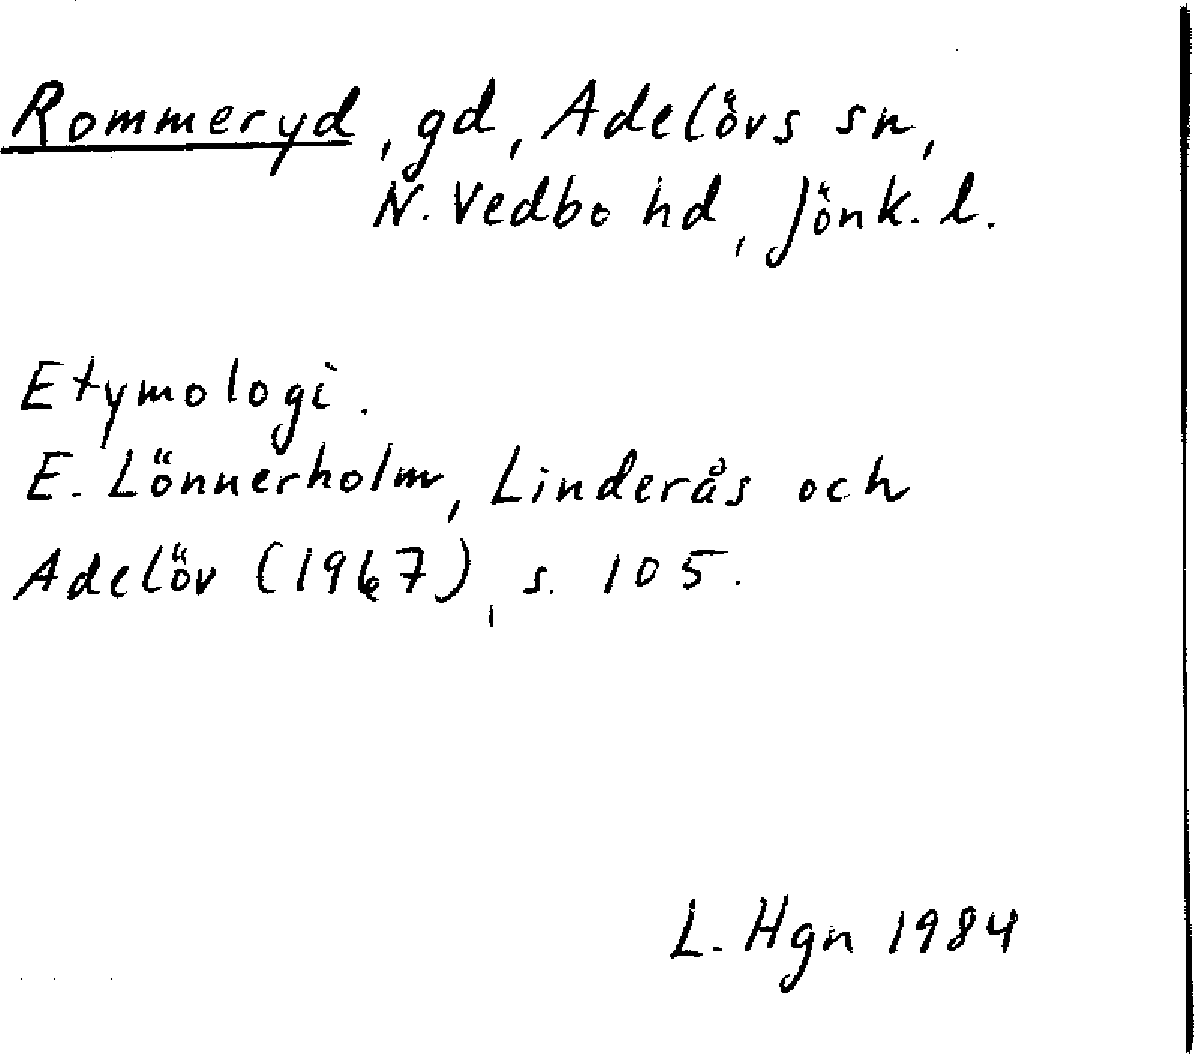 Rommeryd, gd, Adelövs sn,
N. Vedbo hd, Jönk. l.
Etymologi.
E. Lönnerholm, Linderås och
Adelöv (1967), s. 105.
L. Hgn 1984